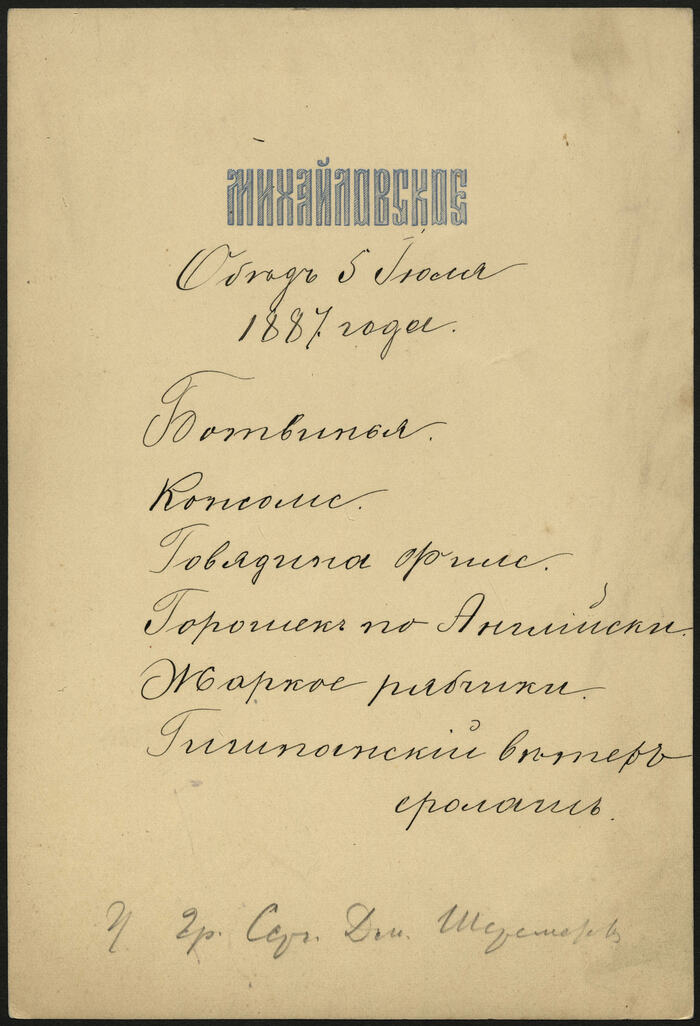 МИХАЙЛОВСКОЕ
Обѣдъ 5 Іюля
1887 года.
Ботвинья.
Консоме.
Говядина филе.
Горошекъ по Англійски.
Жаркое рябчики.
Гишпанскій вѣтеръ
еролашь.
У Гр. Серг. Дм. Шереметев